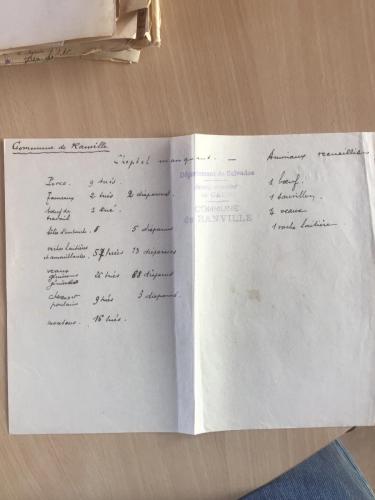 Commune de Ranville
Cheptel manquant. —
Animaux recueillis
Département du Calvados
COMMUNE
de RANVILLE
Porcs 9 tués
Taureaux 2 tués 2 disparus
bœuf de travail 1 tué
5 disparus
vaches laitières et amouillantes 57 tuées 13 disparues
veaux génisses 26 tués 68 disparus
chevaux poulains 9 tués 3 disparus
moutons 16 tués.
1 bœuf
1 taurillon
7 veaux
1 vache laitière